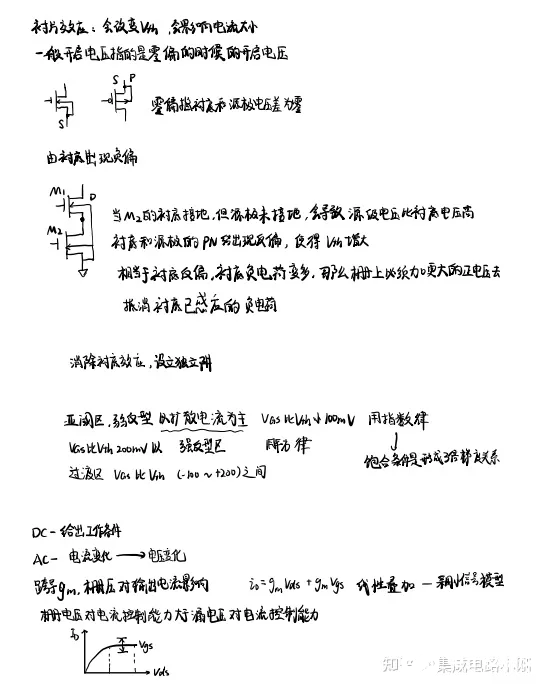 衬片效应：会改变Vth，会影响电流大小
一般开启电压指的是零偏的时候的开启电压
S P
S
零偏指衬底和源极电压差为零
由衬底出现负偏
M1 D
M2
当M2的衬底接地，但源极未接地，会导致源级电压比衬底电压高
衬底和源极的PN结出现反偏，使得Vth增大
相当于衬底反偏，衬底负电荷变多，那么栅上必须加更大的正电压去
抵消衬底已感应的负电荷
消除衬底效应，设立独立阱
亚阈区，弱反型 以扩散电流为主 VGS比Vth小100mV 用指数律
VGS比Vth 200mV以 强反型区 用方律
饱合条件是形成了倍梯度关系
过渡区 VGS比Vth (-100～+200)之间
DC - 给出工作条件
AC - 电流变化 → 电压变化
跨导gm，栅压对输出电流影响 io = gm Vds + gm Vgs 线性叠加 - 小信号模型
栅电压对电流控制能力大于漏电压对电流控制能力
ID
Vgs
Vds
知乎 集成电路小